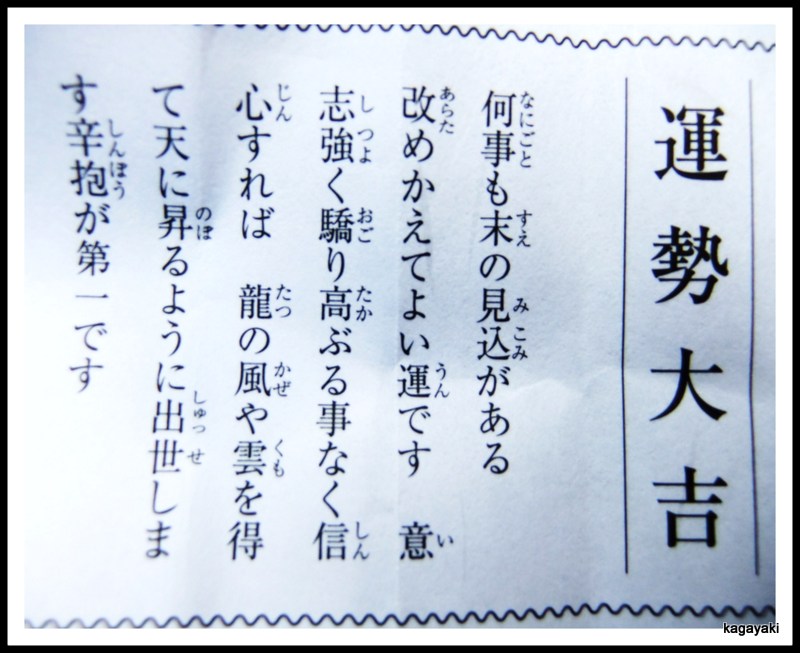 運勢大吉
何事も末の見込がある
改めかえてよい運です　意
志強く驕り高ぶる事なく信
心すれば　龍の風や雲を得
て天に昇るように出世しま
す辛抱が第一です
kagayaki